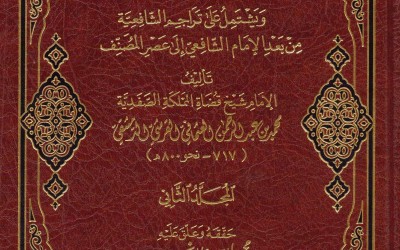 وَيَشْتَمِلُ عَلَى تَرَاجِمِ الشَّافِعِيَّةِ
مِنْ بَعْدِ الإِمَامِ الشَّافِعِيِّ إِلَى عَصْرِ المُصَنِّفِ
تَأليفُ
الإِمَامِ شَيْخِ قُضَاةِ المَمْلَكَةِ الصَّفَدِيَّةِ
محمد بن عبد الرحمن العثماني القرشي الدمشقي
(٧١٧ - نحو ٨٠٠ هـ)
المُجَلَّدُ الثَّانِي
حَقَّقَهُ وَعَلَّقَ عَلَيْهِ